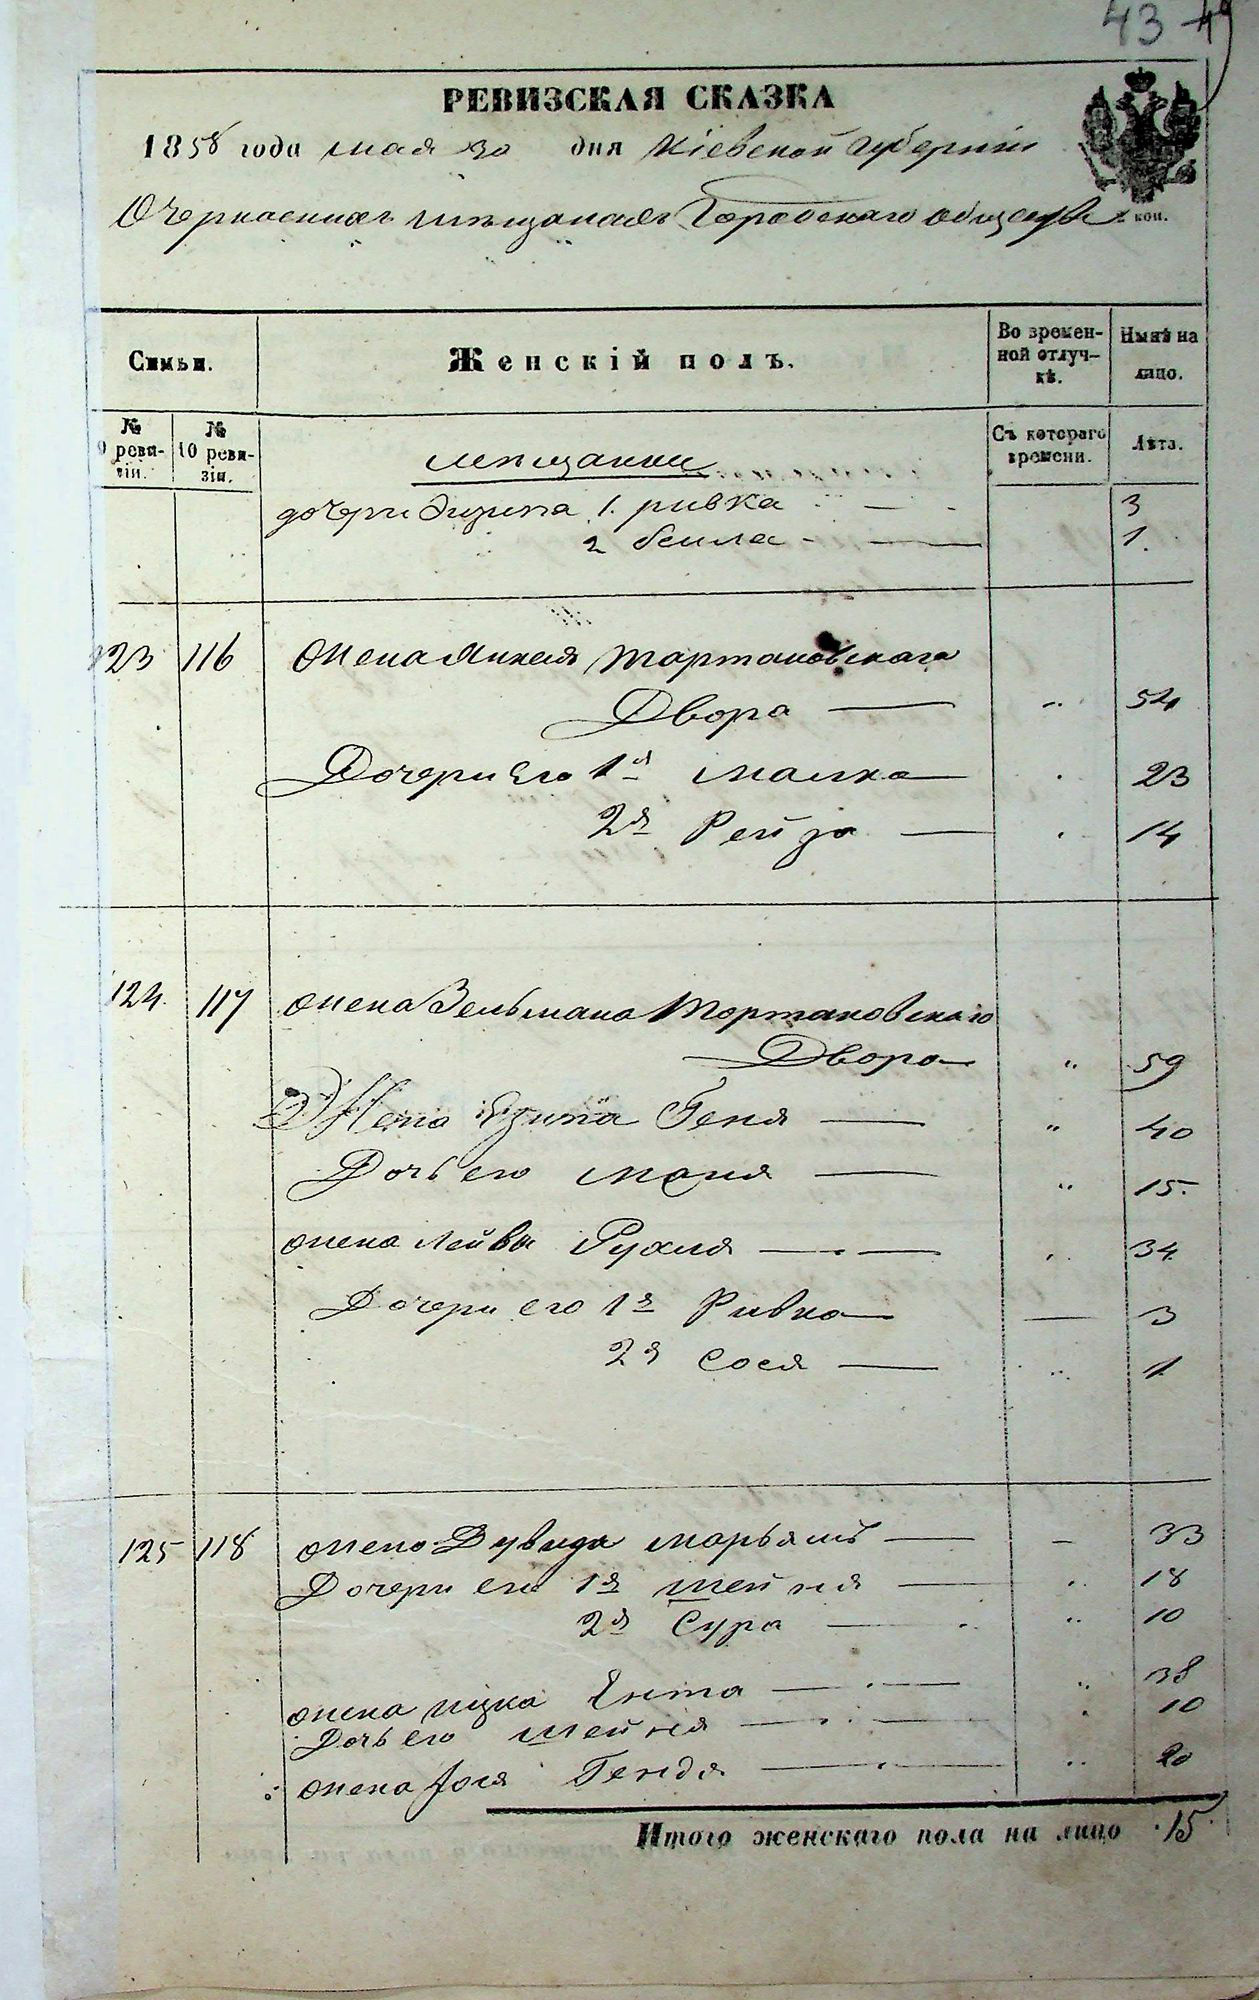 43 49
РЕВИЗСКАЯ СКАЗКА
1858 года мая 30 дня Кіевской Губерніи
О Черкаскихъ мѣщанахъ Городскаго общества
коп.
Семьи. Женскій полъ. Во временной отлучкѣ. Нынѣ на лицо.
№ 9 ревизіи. № 10 ревизіи. Съ котораго времени. Лѣта.
мѣщанки
дочери 1. ривка — 3
2 бейла — 1.
123 116 Жена Янкеля Тартаковскаго
Двора — 54
Дочери его 1я малка — 23
2я Рейза — 14
124. 117 жена Зельмана Тартаковскаго
Двора — 59
Жена Геня — 40
Дочь его маня — 15.
жена Лейбы Рухля — 34
Дочери его 1я Ривка — 3
2я Сося — 1
125 118 жена Дувида марьямъ — 33
Дочери его 1я шейня — 18
2я Сура — 10
жена ицка Ента — 38
Дочь его шейня — 10
жена Гендя — 20
Итого женскаго пола на лицо 15